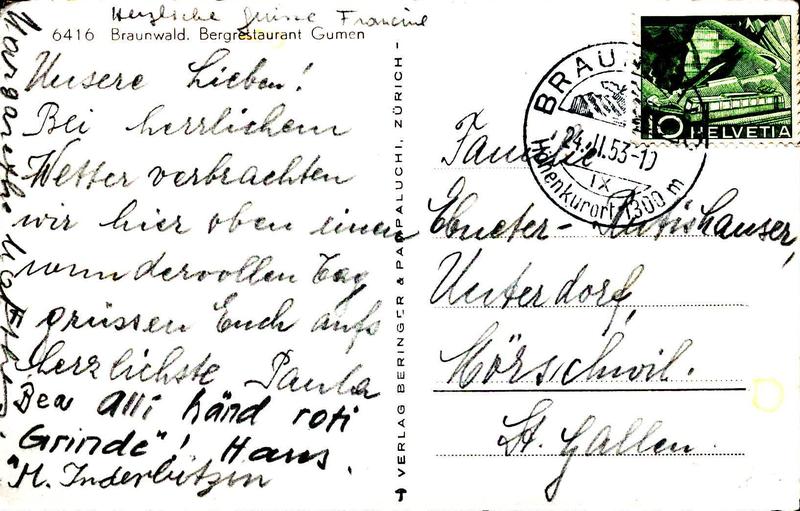 Herzliche Grüsse Francine
6416 Braunwald. Bergrestaurant Gumen
Unsere Lieben!
Bei herrlichem
Wetter verbrachten
wir hier oben einen
wundervollen Tag
grüssen Euch aufs
herzlichste Paula
alli händ roti
Grinde"! Hans.
"M. Inderbitzin
Margarethe
VERLAG BERINGER & PAMPALUCHI, ZÜRICH
BRAUNWALD
24.II.53-10
IX
Höhenkurort 1300 m
10 HELVETIA
Familie
Ebneter-Rutishauser,
Unterdorf,
Hörschwil.
St. Gallen.